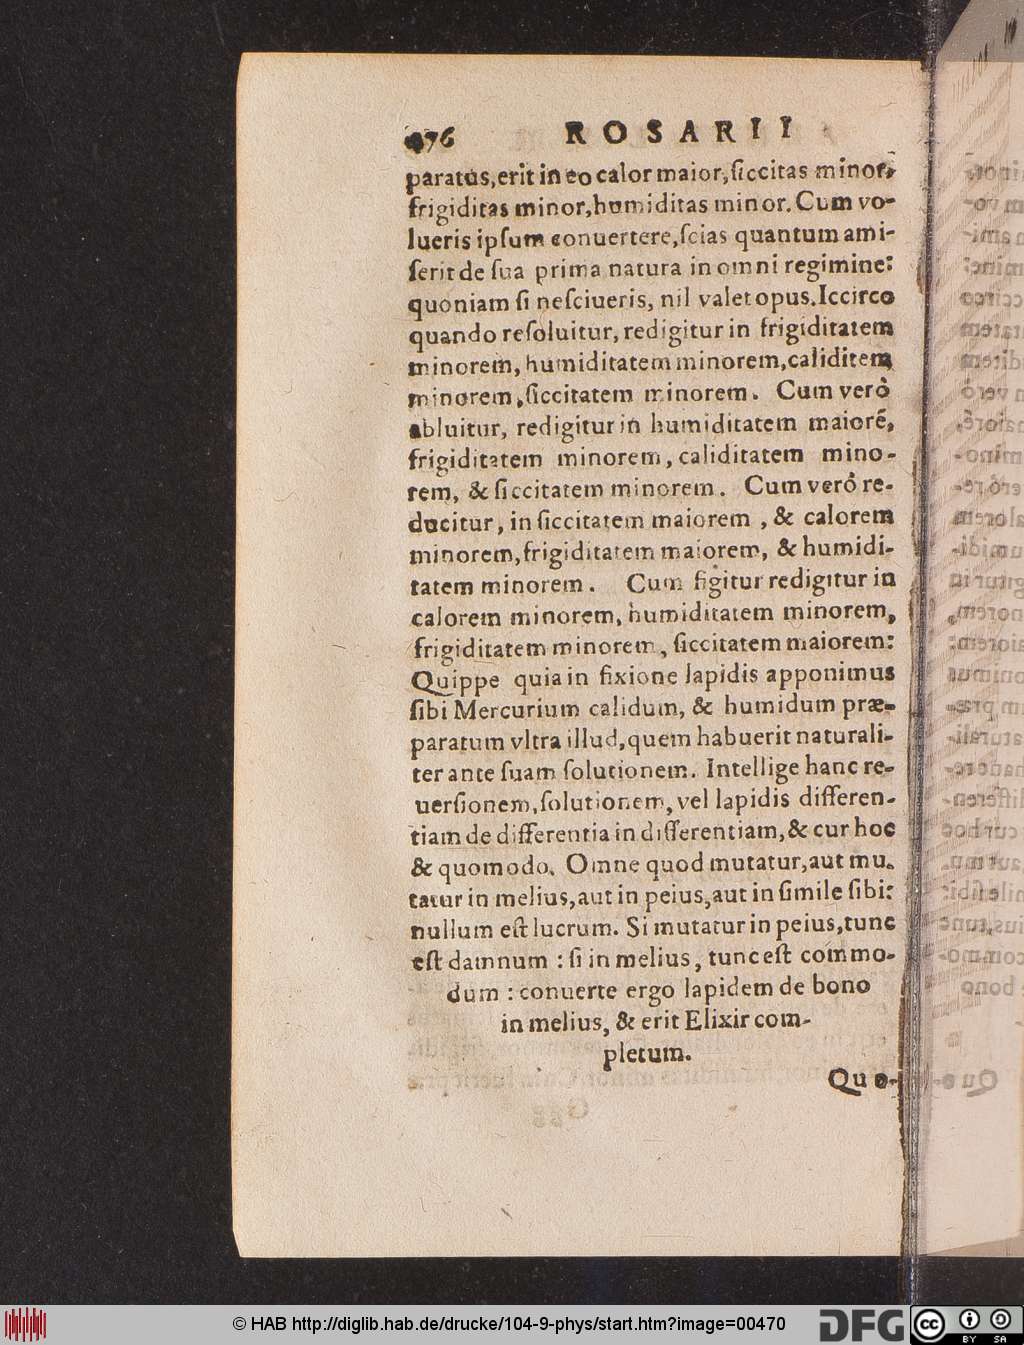 476 ROSARII
paratus,erit in eo calor maior,ſiccitas minor,
frigiditas minor,humiditas minor. Cum vo-
lueris ipſum conuertere,ſcias quantum ami-
ſerit de ſua prima natura in omni regimine:
quoniam ſi neſciueris, nil valet opus. Iccirco
quando reſoluitur, redigitur in frigiditatem
minorem, humiditatem minorem,caliditem
minorem,ſiccitatem minorem. Cum verò
abluitur, redigitur in humiditatem maiorẽ,
frigiditatem minorem, caliditatem mino-
rem, & ſiccitatem minorem. Cum verò re-
ducitur, in ſiccitatem maiorem , & calorem
minorem,frigiditatem maiorem, & humidi-
tatem minorem. Cum figitur redigitur in
calorem minorem, humiditatem minorem,
frigiditatem minorem, ſiccitatem maiorem:
Quippe quia in fixione lapidis apponimus
ſibi Mercurium calidum, & humidum præ-
paratum vltra illud,quem habuerit naturali-
ter ante ſuam ſolutionem. Intellige hanc re-
uerſionem,ſolutionem,vel lapidis differen-
tiam de differentia in differentiam,& cur hoc
& quomodo. Omne quod mutatur,aut mu-
tatur in melius,aut in peius,aut in ſimile ſibi:
nullum eſt lucrum. Si mutatur in peius,tunc
eſt damnum : ſi in melius, tunc eſt commo-
dum : conuerte ergo lapidem de bono
in melius, & erit Elixir com-
pletum.
Quo-
© HAB http://diglib.hab.de/drucke/104-9-phys/start.htm?image=00470
DFG
cc BY SA